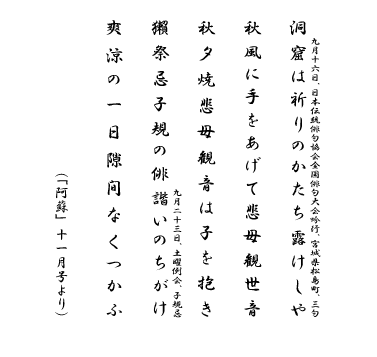 九月十六日、日本伝統俳句協会全国俳句大会吟行、宮城県松島町、三句
洞窟は祈りのかたち露けしや
秋風に手をあげて悲母観世音
秋夕焼悲母観音は子を抱き
九月二十三日、土曜例会、子規忌
獺祭忌子規の俳諧いのちがけ
爽涼の一日隙間なくつかふ
(「阿蘇」十一月号より)